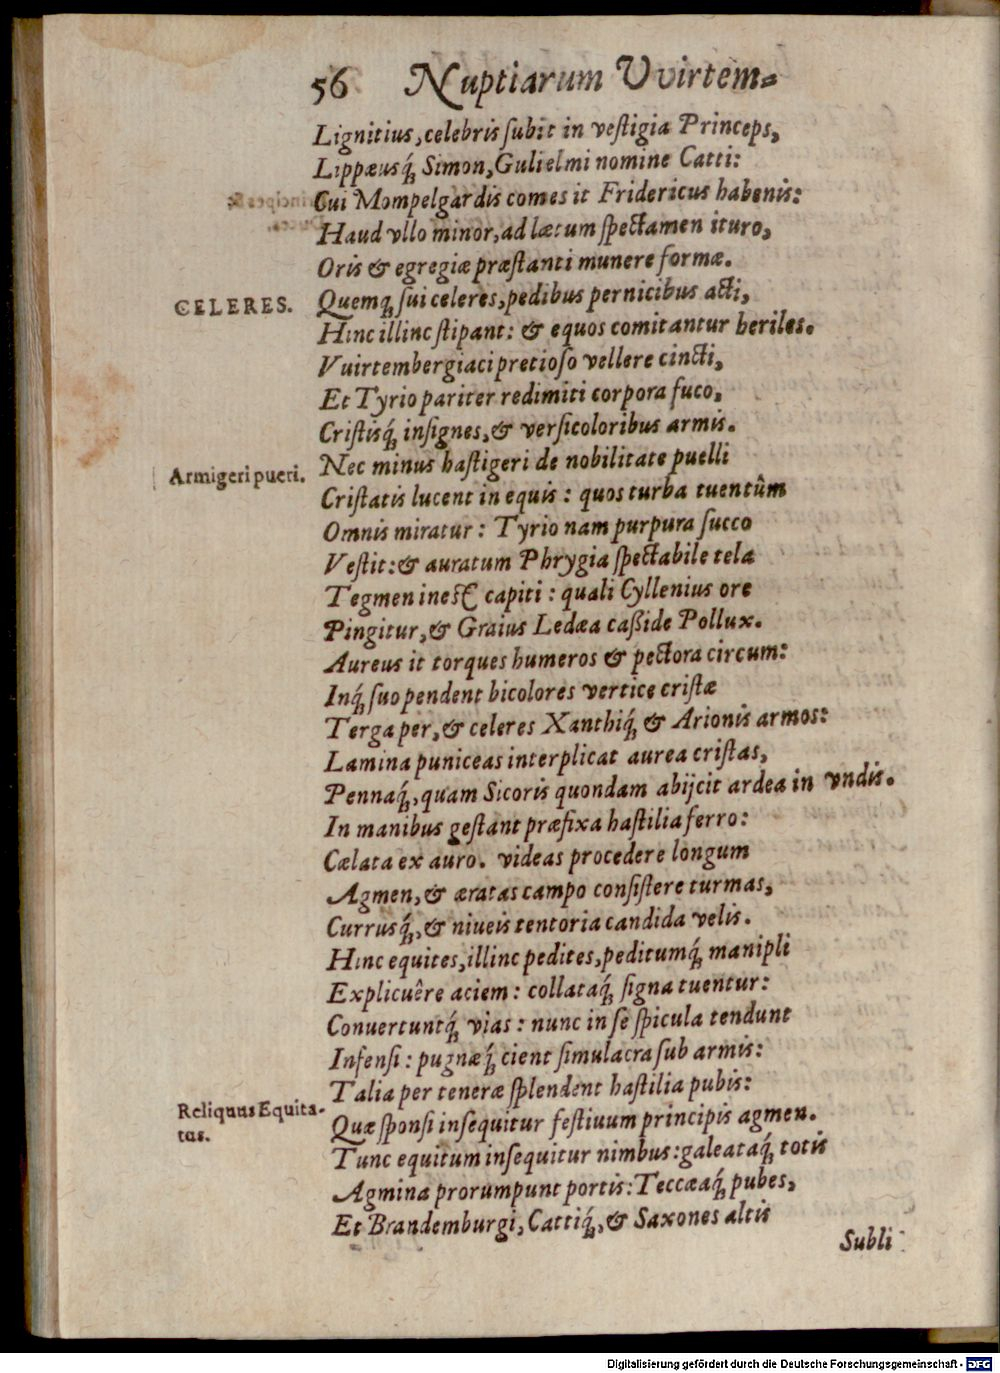 56 Nuptiarum Vvirtem-
Lignitius, celebris subit in vestigia Princeps,
Lippæusq́; Simon, Gulielmi nomine Catti:
Cui Mompelgardis comes it Fridericus habenis:
Haud vllo minor, ad lætum spectamen ituro,
Oris & egregiæ præstanti munere formæ.
CELERES. Quemq; sui celeres, pedibus pernicibus acti,
Hinc illinc stipant: & equos comitantur heriles.
Vuirtembergiaci pretioso vellere cincti,
Et Tyrio pariter redimiti corpora fuco,
Cristisq́; insignes, & versicoloribus armis.
Armigeri pueri. Nec minus hastigeri de nobilitate puelli
Cristatis lucent in equis: quos turba tuentûm
Omnis miratur: Tyrio nam purpura succo
Vestit: & auratum Phrygia spectabile tela
Tegmen inest capiti: quali Cyllenius ore
Pingitur, & Graius Ledæa casside Pollux.
Aureus it torques humeros & pectora circum:
Inq́; suo pendent bicolores vertice cristæ
Terga per, & celeres Xanthiq́; & Arionis armos:
Lamina puniceas interplicat aurea cristas,
Pennaq́;, quam Sicoris quondam abijcit ardea in vndis.
In manibus gestant præfixa hastilia ferro:
Cælata ex auro. videas procedere longum
Agmen, & æratas campo consistere turmas,
Currusq́;, & niueis tentoria candida velis.
Hinc equites, illinc pedites, peditumq́; manipli
Explicuêre aciem: collataq́; signa tuentur:
Conuertuntq́; vias: nunc in se spicula tendunt
Infensi: pugnæq́; cient simulacra sub armis:
Talia per teneræ splendent hastilia pubis:
Reliquus Equita-
tus.
Quæ sponsi insequitur festiuum principis agmen.
Tunc equitum insequitur nimbus: galeataq́; totis
Agmina prorumpunt portis: Teccæaq́; pubes,
Et Brandemburgi, Cattiq́;, & Saxones altis
Subli
Digitalisierung gefördert durch die Deutsche Forschungsgemeinschaft - DFG